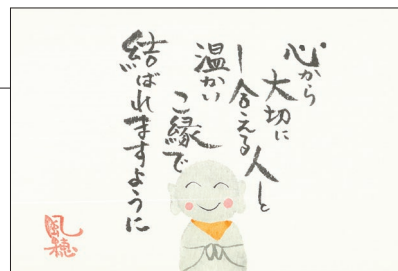 心から
大切に
し合える人と
温かい
ご縁で
結ばれますように
風穂